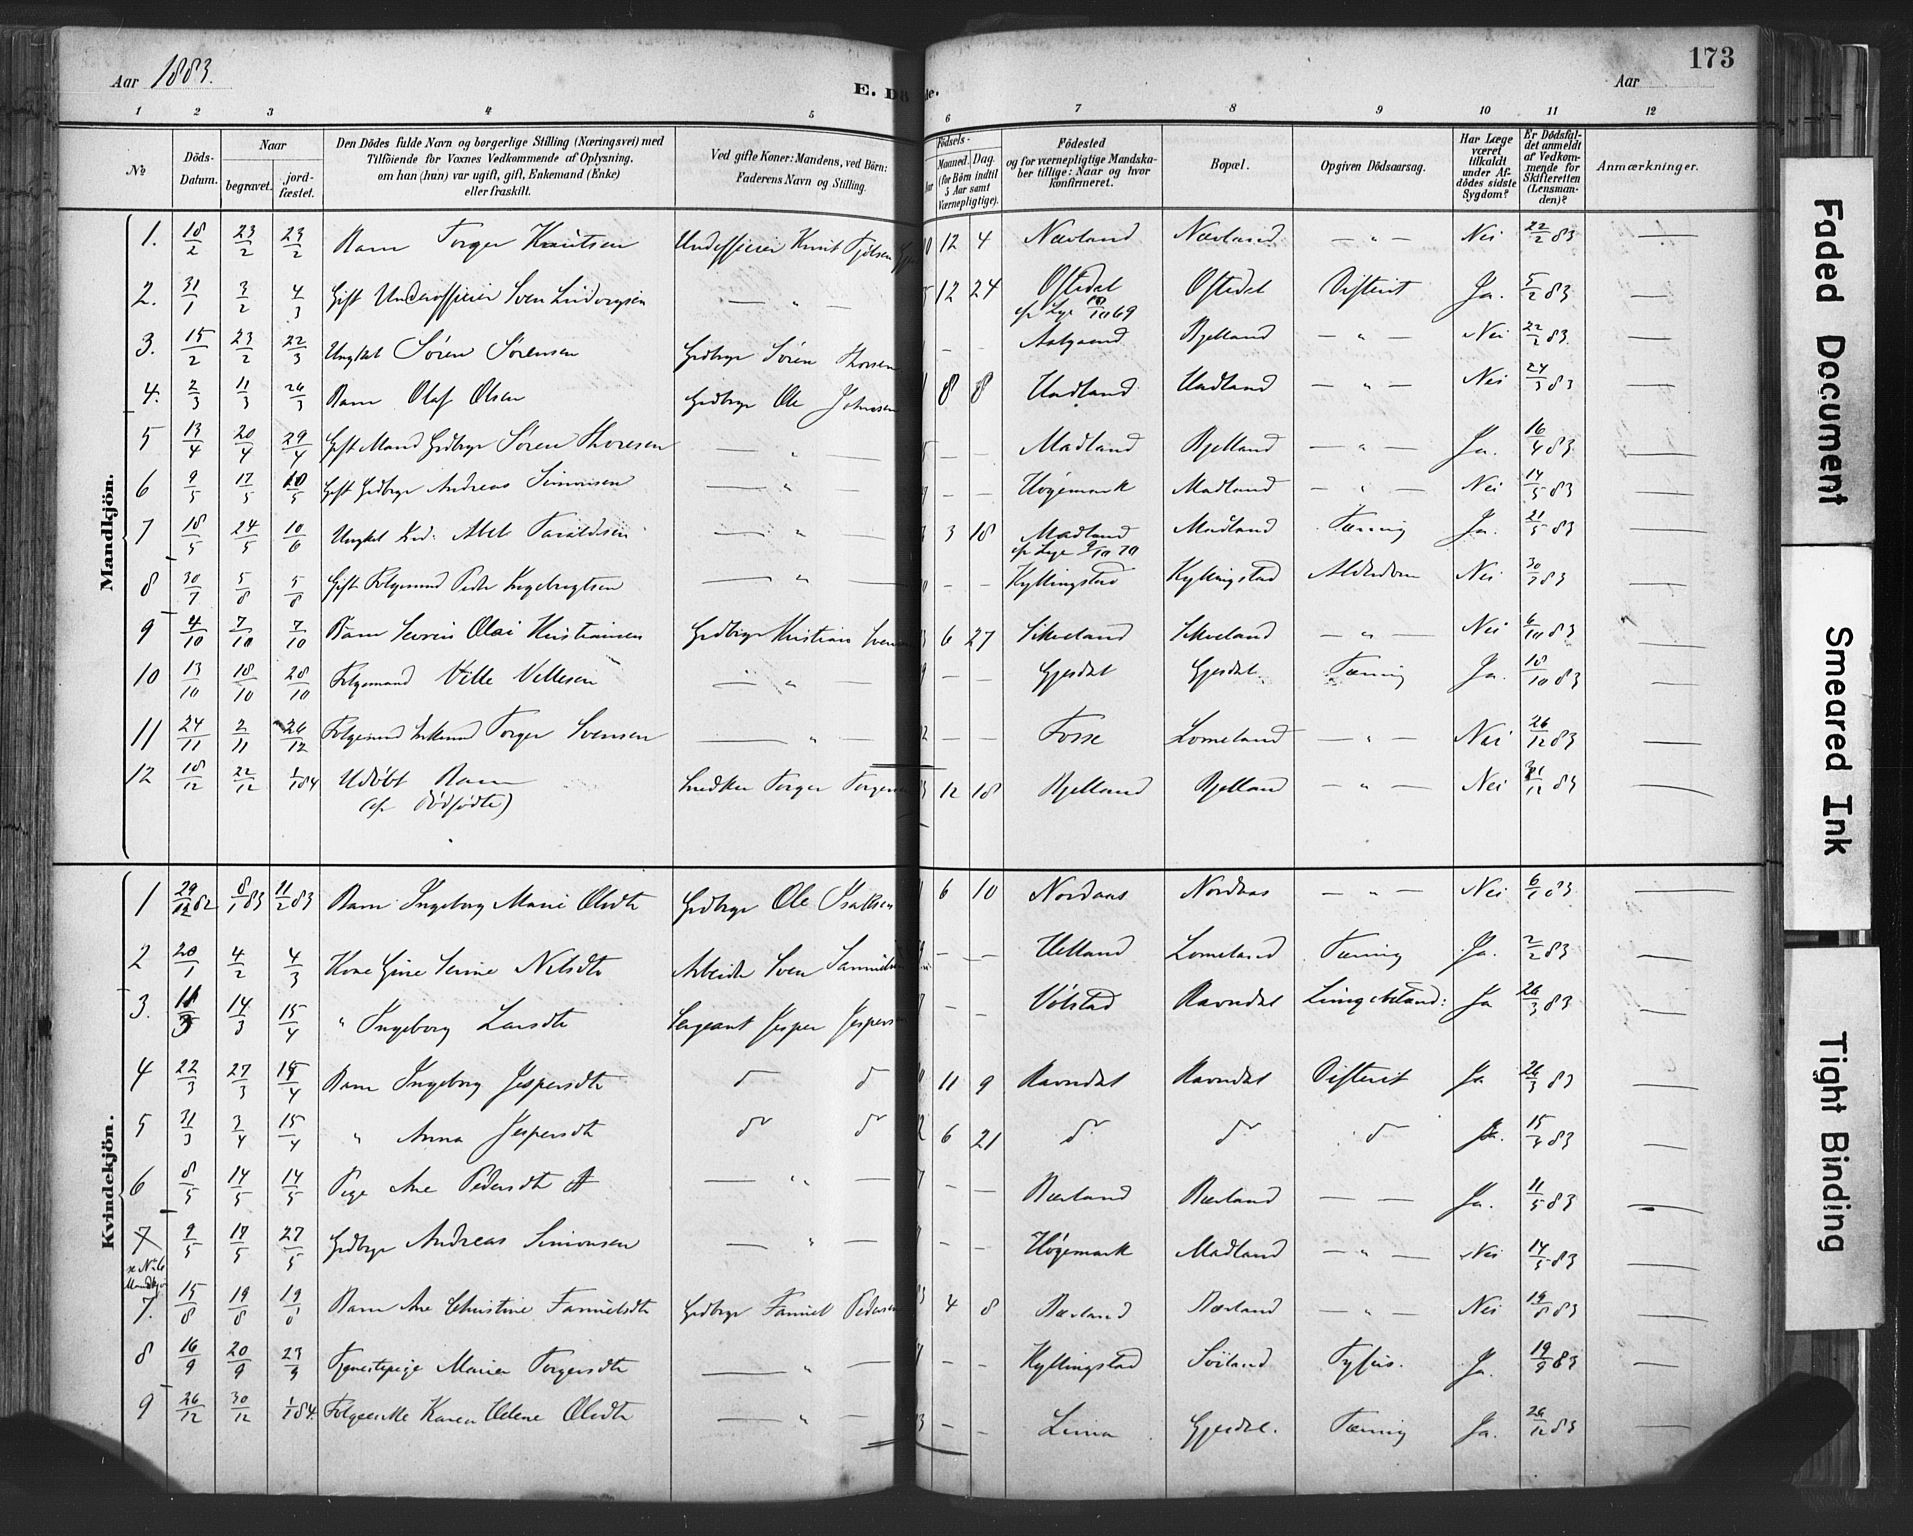 173
Aar 1883.
Aar
E. Dö
de.
1 2 3 4 5 6 7 8 9 10 11 12
№
Döds-Datum.
Naar
begravet.
jord-fæstet.
Den Dödes fulde Navn og borgerlige Stilling (Næringsvei) med
Tilföiende for Voxnes Vedkommende af Oplysning,
om han (hun) var ugift, gift, Enkemand (Enke)
eller fraskilt.
Ved gifte Koner: Mandens, ved Börn:
Faderens Navn og Stilling.
Födsels-
Maaned. Dag.
(for Börn indtil
5 Aar samt
Værnepligtige).
Födested
og for værnepligtige Mandska-
ber tillige: Naar og hvor
konfirmeret.
Bopæl.
Opgiven Dödsaarsag.
Har Læge
været
tilkaldt
under Af-
dödes sidste
Sygdom?
Er Dödsfal-
det anmeldt
af Vedkom-
mende for
Skifteretten
(Lensman-
den)?
Anmærkninger.
Mandkjön.
1. 18/2 23/2 23/2 Barn Torger Knutsen Underofficier Knut 12 4 Nævland Nævland — " — Nei 22/2 83 —
2. 31/1 3/2 4/3 Gift Underofficier Sven Ludvigsen — " — 12 24 Oftedal Oftedal Difterit Ja. 5/2 83 —
cf Lye 10/10 69
3. 15/2 23/2 22/3 Ungkal Søren Sørensen Grdbrgr Søren Thorsen — Aalgaard Bjelland — " — Nei 22/2 83. —
4. 2/3 11/3 26/3 Barn Olaf Olsen Grdbrgr Ole Johnsen 8 8 Uadland Uadland — " — Nei 24/3 83 —
5 13/4 20/4 29/4 Gift Mand Grdbrgr Søren Thoresen — " — — — Madland Bjelland — " — Ja. 16/4 83 —
6 9/5 17/5 Gift Grdbrgr Andreas Simonsen — " — — — Høgemark Madland — " — Nei 14/5 83 —
7 18/5 24/5 10/6 Ungkal Abel Taraldsen — " — 3 18 Madland Madland Tæring Ja. 21/5 83 —
cf Lye
8 30/7 5/8 5/8 Gift Folgemand Peder Ingebrigtsen — " — — — Kyllingstad Kyllingstad Alderdom Nei 30/7 83 —
9 4/10 7/10 7/10 Barn Olai Kristiansen Grdbrgr Kristian 6 27 Skeeland Skeeland — " — Nei 6/10 83 —
10 13/10 18/10 28/10 Folgemand Ville Villesen — " — — — Gjesdal Gjesdal. Tæring Ja. 18/10 83 —
11 24/11 2/11 26/12 Folgemand Enkemand Torger Svensen — " — — — Fosse Lomeland — " — Nei 26/12 83 —
12 18/12 22/12 1/1 84 Udøbt Barn Snedker Torger 12 18 Bjelland Bjelland — " — Nei 31/12 83 —
(cf Dødfødte)
Kvindekjön.
1 29/12 82 8/1 83 11/2 83 Barn Ingeborg Marie Olsdtr Grdbrgr Ole Isaksen 6 10 Nordaas Nordaas — " — Nei 6/1 83 —
2 20/1 4/2 4/3 Kone Gine Serine Nilsdtr Arbeider Sven — — Helland Lomeland Tæring Ja. 2/2 83 —
3. 14/3 15/4 " Ingeborg Larsdtr Sergeant Jesper Jespersen — — Vølstad Ravndal Ja 26/3 83 —
4 22/3 27/3 15/4 Barn Ingeborg Jespersdtr do do 11 9 Ravndal Ravndal Difterit Ja 26/3 83 —
5 31/3 3/4 15/4 " Anna Jespersdtr do do 6 21 do do do Ja. 15/4 83 —
6 8/5 14/5 14/5 Pige Ane Pedersdtr — " — — — Bærland Bærland — — Ja. 11/5 83 —
7 9/5 17/5 27/5 Grdbrgr Andreas Simonsen — " — — Høgemark Madland — " — Nei 14/5 83 —
se No 6
Mandkjøn
7. 15/8 19/8 19/8 Barn Ane Christine Samuelsdtr Grdbrgr Samuel Pedersen 4 8 Bærland Bærland — " — Nei 19/8 83 —
8 16/9 20/9 23/9 Tjenestepige Maria Torgersdtr — " — — — Kyllingstad Søiland Tyfus. Ja. 19/9 83 —
9 26/12 30/12 1/1 84. Folgeenke Karen Helene Olsdtr — " — — — Lima Gjesdal. Tæring Ja. 26/12 83 —
Faded Document
Smeared Ink
Tight Binding